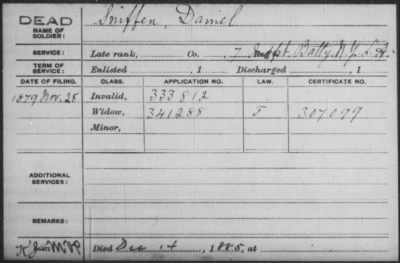 DEAD Sniffen, Daniel
NAME OF
SOLDIER:
SERVICE: Late rank, Co. 7 Indpt. Batty N.Y. L.A.
TERM OF
SERVICE: Enlisted , 1 Discharged , 1
DATE OF FILING. CLASS. APPLICATION NO. LAW. CERTIFICATE NO.
1879 Nov. 28 Invalid, 333812
Widow, 341288 307099
Minor,
ADDITIONAL
SERVICES:
REMARKS:
Died Dec 14, 1885, at